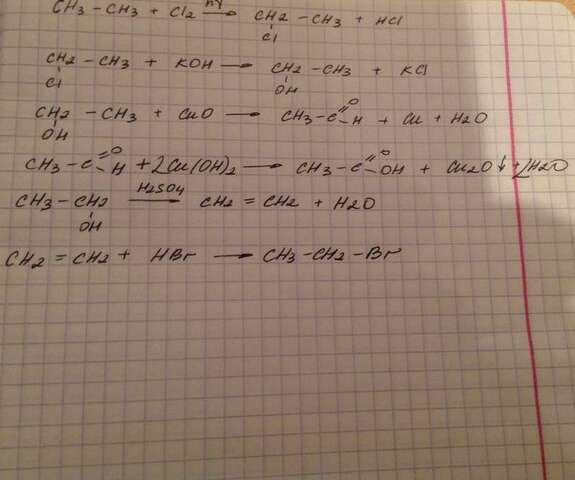 CH3-CH3 + Cl2 hγ→ CH2-CH3 + HCl
Cl
CH2-CH3 + KOH → CH2-CH3 + KCl
Cl OH
CH2-CH3 + CuO → CH3-C=O-H + Cu + H2O
OH
CH3-C=O-H + 2Cu(OH)2 → CH3-C=O-OH + Cu2O↓ + 2H2O
CH3-CH2 H2SO4→ CH2=CH2 + H2O
OH
CH2=CH2 + HBr → CH3-CH2-Br